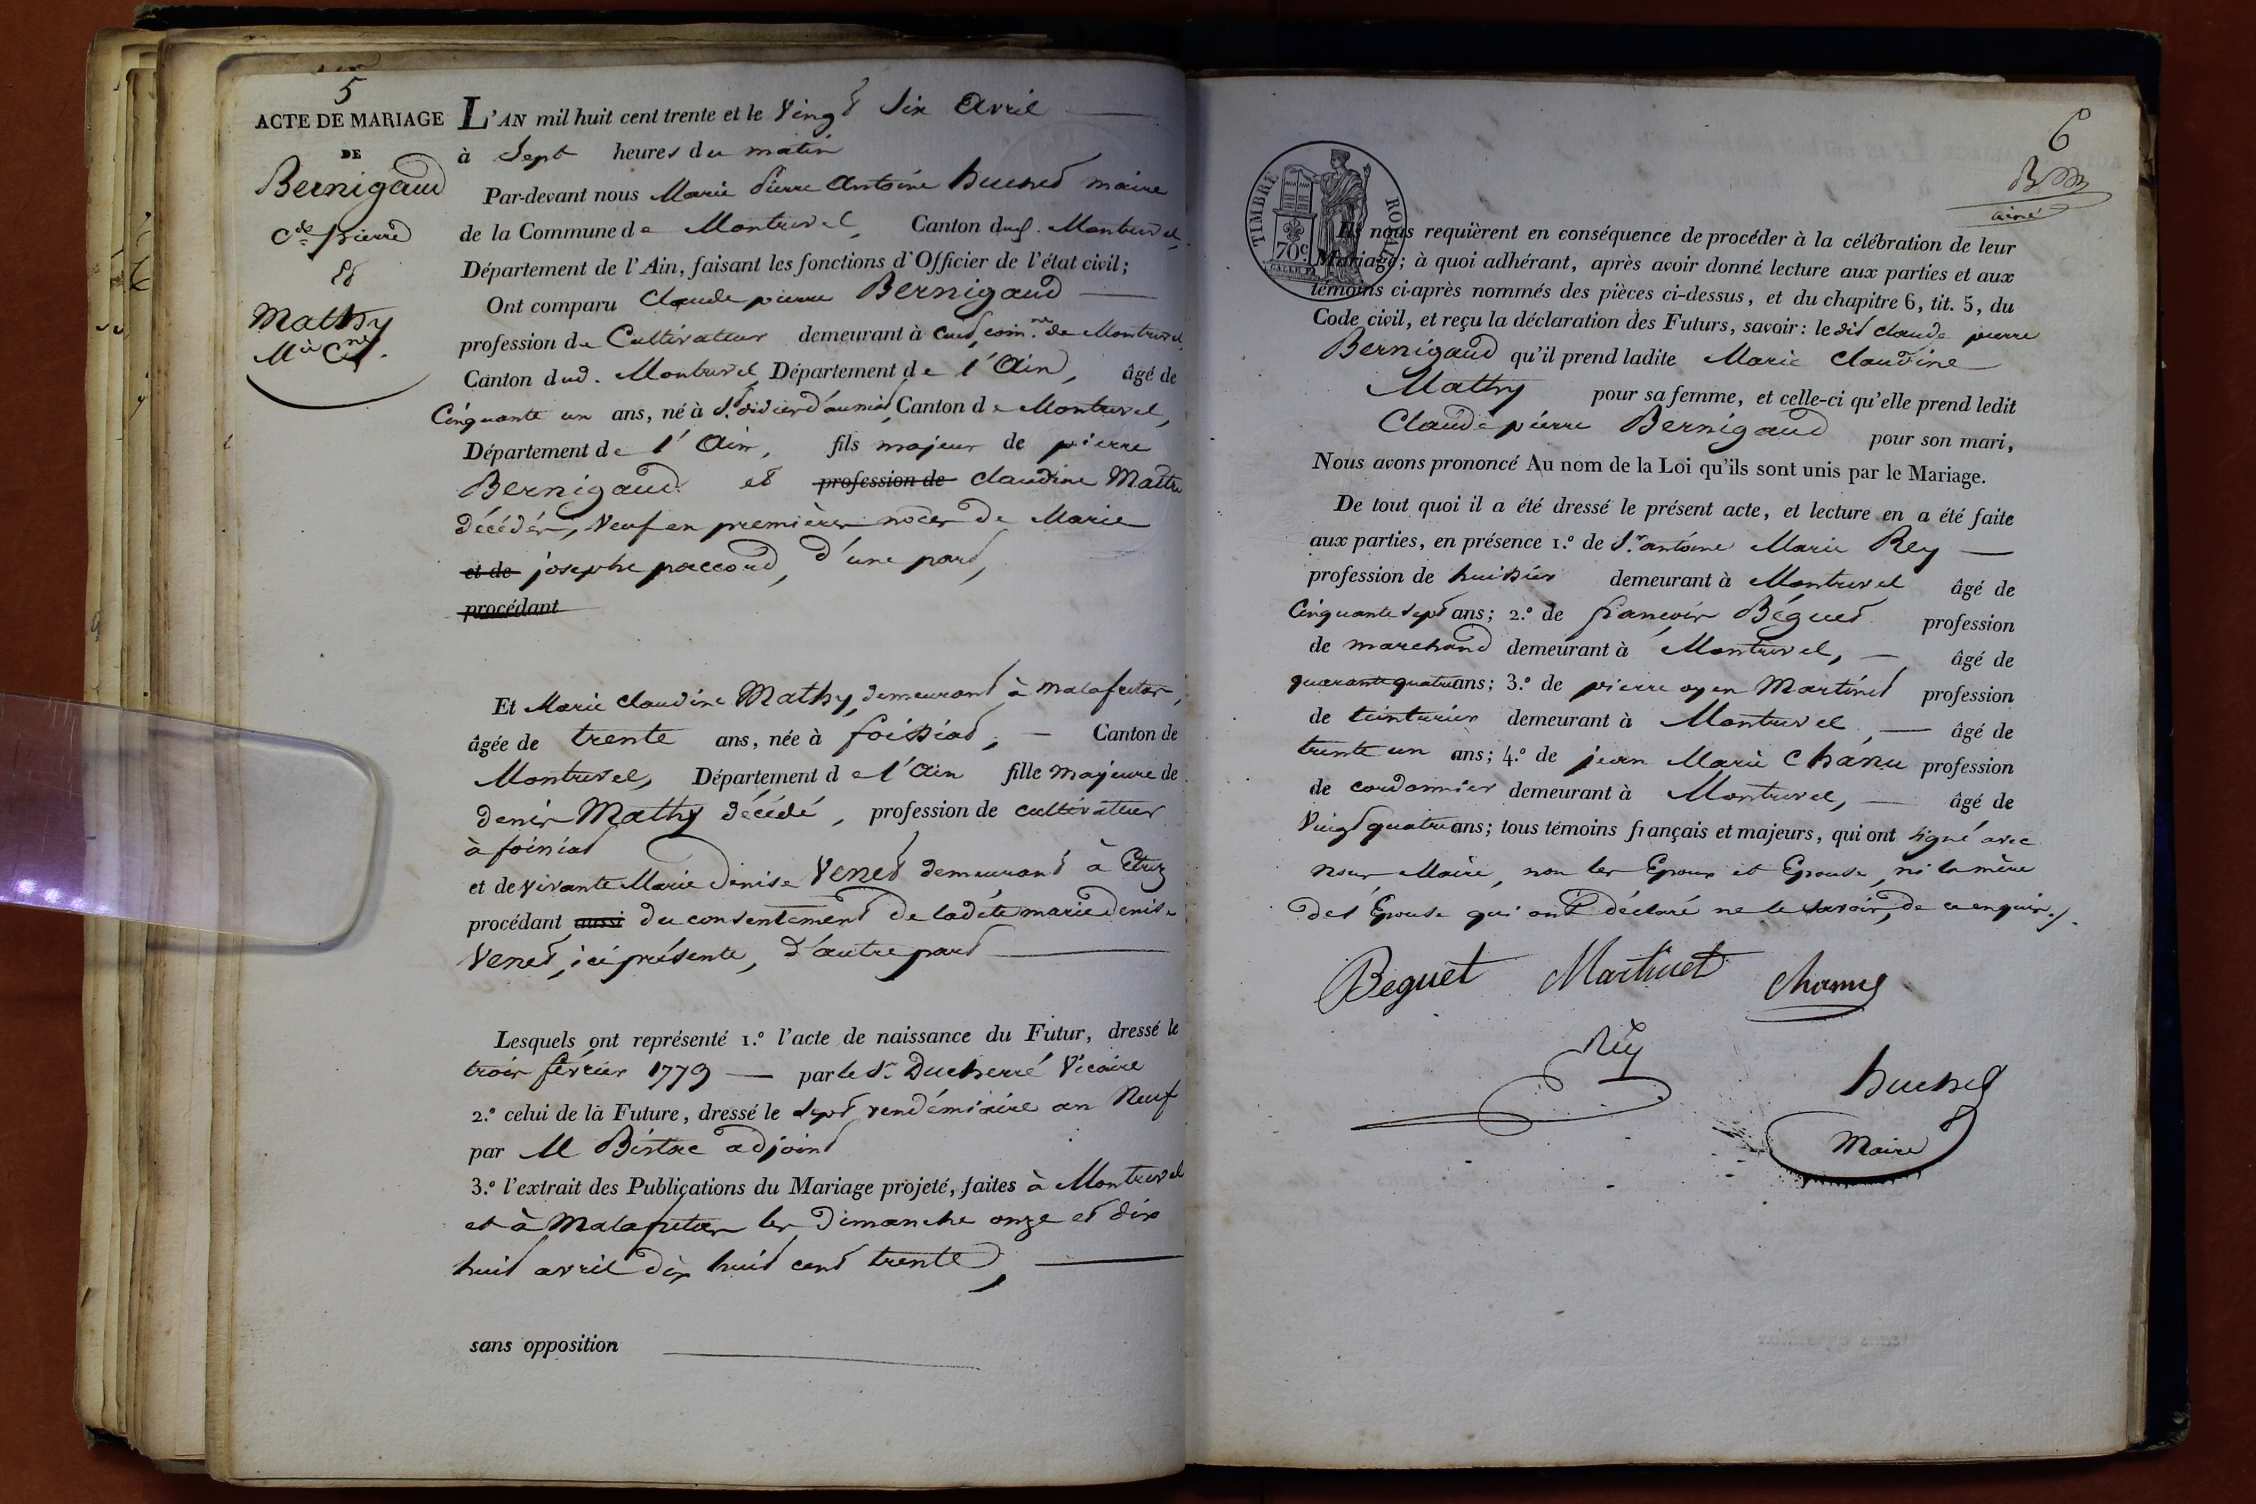 5
ACTE DE MARIAGE
DE
Bernigaud
Cde pierre
et
Mathy
Mie Cne.
L'AN mil huit cent trente et le vingt six avril
à sept heures du matin
Par-devant nous Marie pierre antoine huchet maire
de la Commune de Montrevel, Canton dud. Montrevel,
Département de l'Ain, faisant les fonctions d'Officier de l'état civil;
Ont comparu Claude pierre Bernigaud
profession de Cultivateur demeurant à Cuet, comne. de Montrevel,
Canton dud. Montrevel, Département de l'Ain, âgé de
Cinquante un ans, né à St. didier d'aussiat, Canton de Montrevel,
Département de l'Ain, fils majeur de pierre
Bernigaud et profession de claudine Mathy
décédés, veuf en premières noces de Marie
et de josephe paccoud, d'une part,
procédant
Et Marie claudine Mathy, demeurant à malafretas,
âgée de trente ans, née à foissiat, Canton de
Montrevel, Département de l'Ain fille majeure de
denis Mathy décédé, profession de cultivateur
à foissiat
et de vivante Marie denise Venet demeurant à Etrez
procédant aussi du consentement de ladite marie denise
Venet, ici présente, d'autre part
Lesquels ont représenté 1.° l'acte de naissance du Futur, dressé le
trois février 1779 par le Sr. Ducherré Vicaire
2.° celui de la Future, dressé le sept vendémiaire an Neuf
par M adjoint
3.° l'extrait des Publications du Mariage projeté, faites à Montrevel
et à Malafretas les Dimanche onze et dix
huit avril dix huit cent trente,
sans opposition
6
TIMBRE ROYAL
70c
Ils nous requièrent en conséquence de procéder à la célébration de leur
Mariage; à quoi adhérant, après avoir donné lecture aux parties et aux
témoins ci-après nommés des pièces ci-dessus, et du chapitre 6, tit. 5, du
Code civil, et reçu la déclaration des Futurs, savoir: ledit claude pierre
Bernigaud qu'il prend ladite Marie claudine
Mathy pour sa femme, et celle-ci qu'elle prend ledit
Claude pierre Bernigaud pour son mari,
Nous avons prononcé Au nom de la Loi qu'ils sont unis par le Mariage.
De tout quoi il a été dressé le présent acte, et lecture en a été faite
aux parties, en présence 1.° de Sr. antoine Marie Rey
profession de huissier demeurant à Montrevel âgé de
Cinquante sept ans; 2.° de françois Béguet profession
de marchand demeurant à Montrevel, âgé de
quarante quatre ans; 3.° de pierre oyen Martinet profession
de teinturier demeurant à Montrevel, âgé de
trente un ans; 4.° de jean Marie Chanu profession
de cordonnier demeurant à Montrevel, âgé de
vingt quatre ans; tous témoins français et majeurs, qui ont signé avec
nous Maire, non les Epoux et Epouse, ni la mère
de l'Epouse qui ont déclaré ne le savoir, de ce enquis./.
Beguet Martinet
Rey
huchet
Maire